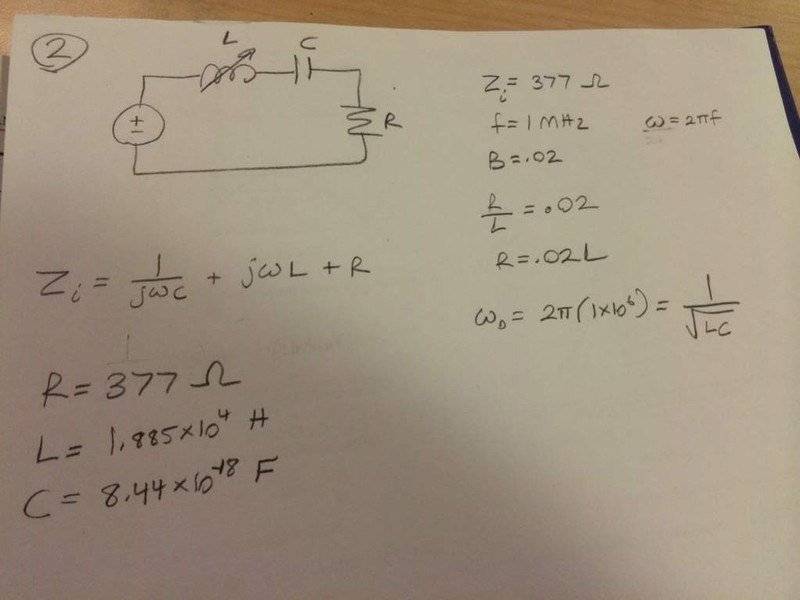 2
L
C
±
R
Zᵢ = 377 Ω
f = 1 MHz ω = 2πf
B = .02
R/L = .02
R = .02L
ω₀ = 2π(1×10⁶) = 1/√LC
Zᵢ = 1/jωC + jωL + R
R = 377 Ω
L = 1.885×10⁴ H
C = 8.44×10⁻¹⁸ F